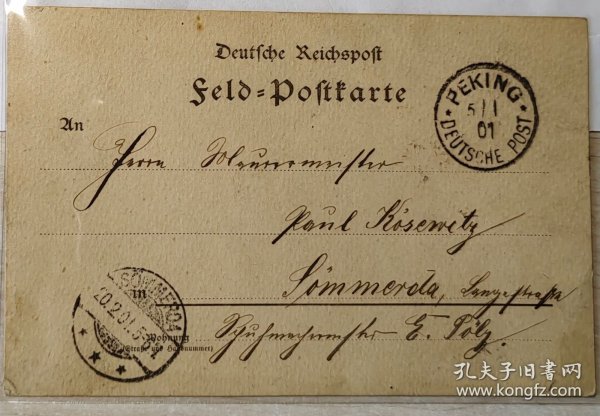 Deutsche Reichspost
Feld=Postkarte
PEKING
5/1
01
DEUTSCHE POST
An
Herrn Maurermeister
Paul Kösewitz
SÖMMERDA
20.2.01.5
in
Sömmerda, Langestraße
Wohnung
(Straße und Hausnummer)
Schuhmachermstr E. Pölz.
孔夫子旧书网
www.kongfz.com